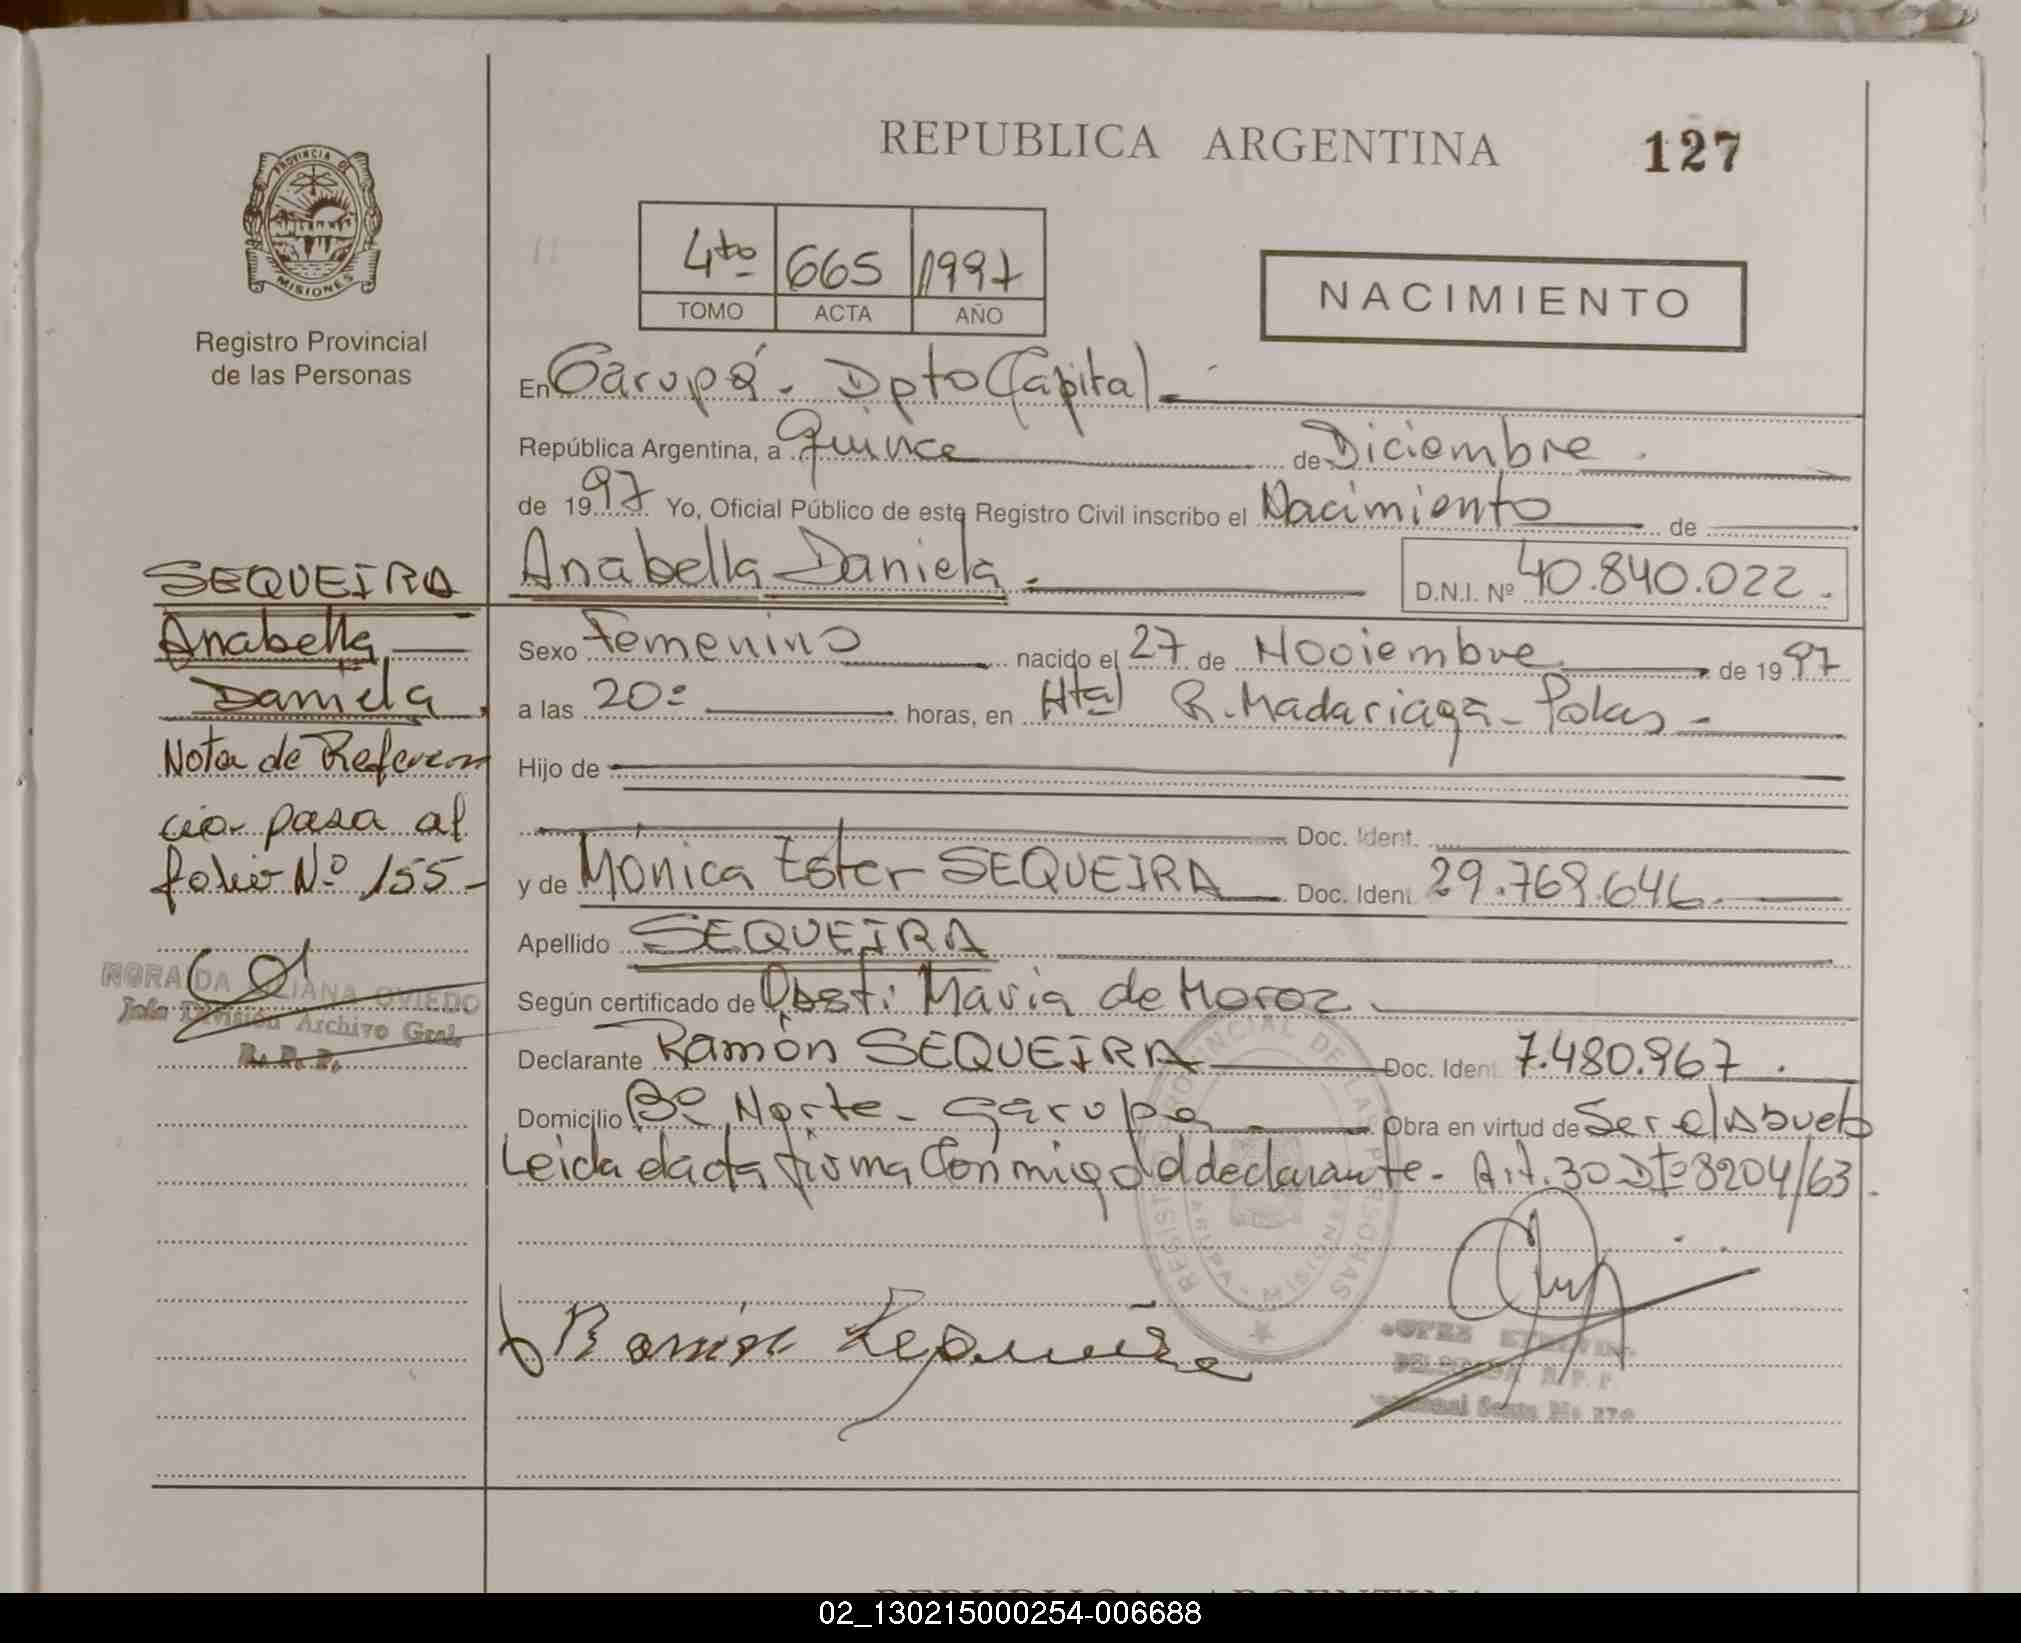 REPUBLICA ARGENTINA
127
PROVINCIA DE
MISIONES
Registro Provincial
de las Personas
4to 665 1997
TOMO ACTA AÑO
NACIMIENTO
En Garupá. Dpto Capital
República Argentina, a Quince de Diciembre
de 1997 Yo, Oficial Público de este Registro Civil inscribo el Nacimiento de
Anabella Daniela D.N.I. Nº 40.840.022.
Sexo Femenino nacido el 27 de Nooiembre de 1997
a las 20: horas, en Htal R. Madariaga - Psdas -
Hijo de
Doc. Ident.
y de Mónica Ester SEQUEIRA Doc. Ident. 29.769.646
Apellido SEQUEIRA
Según certificado de Obst: Maria de Moroz
Declarante Ramón SEQUEIRA Doc. Ident 7.480.967.
Domicilio Bº Norte - Garupa Obra en virtud de Ser el Abuelo
Leida el acta firma Conmigo el declarante - Art. 30 Dto 8204/63.
Ramón Sequeira
SEQUEIRA
Anabella
Daniela
Nota de Referen
cia pasa al
folio Nº 155-
OVIEDO
Jefa División Archivo Gral.
R. P. P.
REGISTRO PROVINCIAL DE LAS PERSONAS
GARUPA - MISIONES
02_130215000254-006688